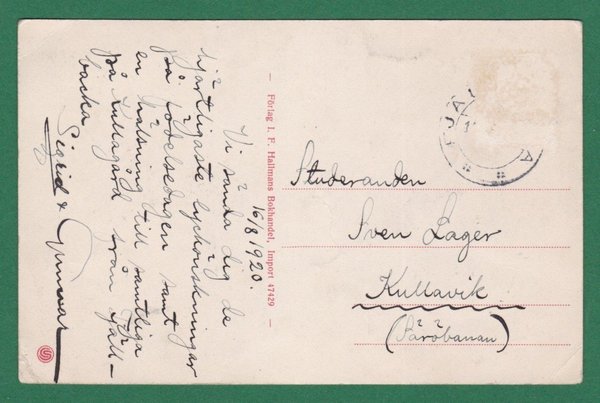 16/8 1920.
Vi sända dig de
hjärtligaste lyckönskningar
på födelsedagen samt
en hälsning till samtliga
på Kullagård från Fjäll-
backa.
Sigrid & Gunnar
— Förlag I. F. Hallmans Bokhandel, Import 47429 —
Studeranden
Sven Lager
Kullavik
(Säröbanan)